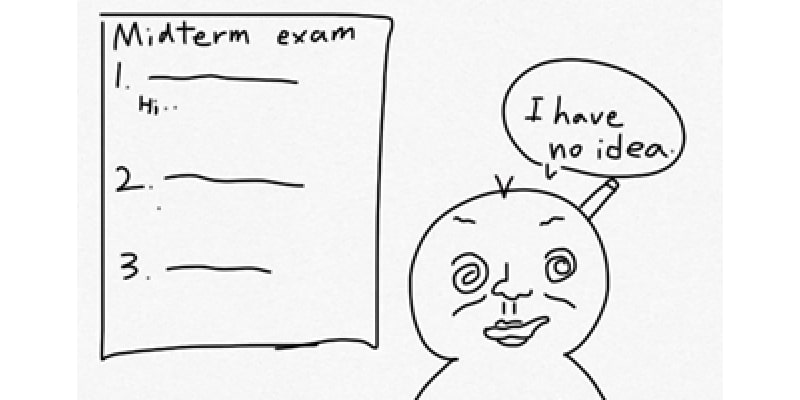 Midterm exam
1.
Hi..
2.
3.
I have
no idea.